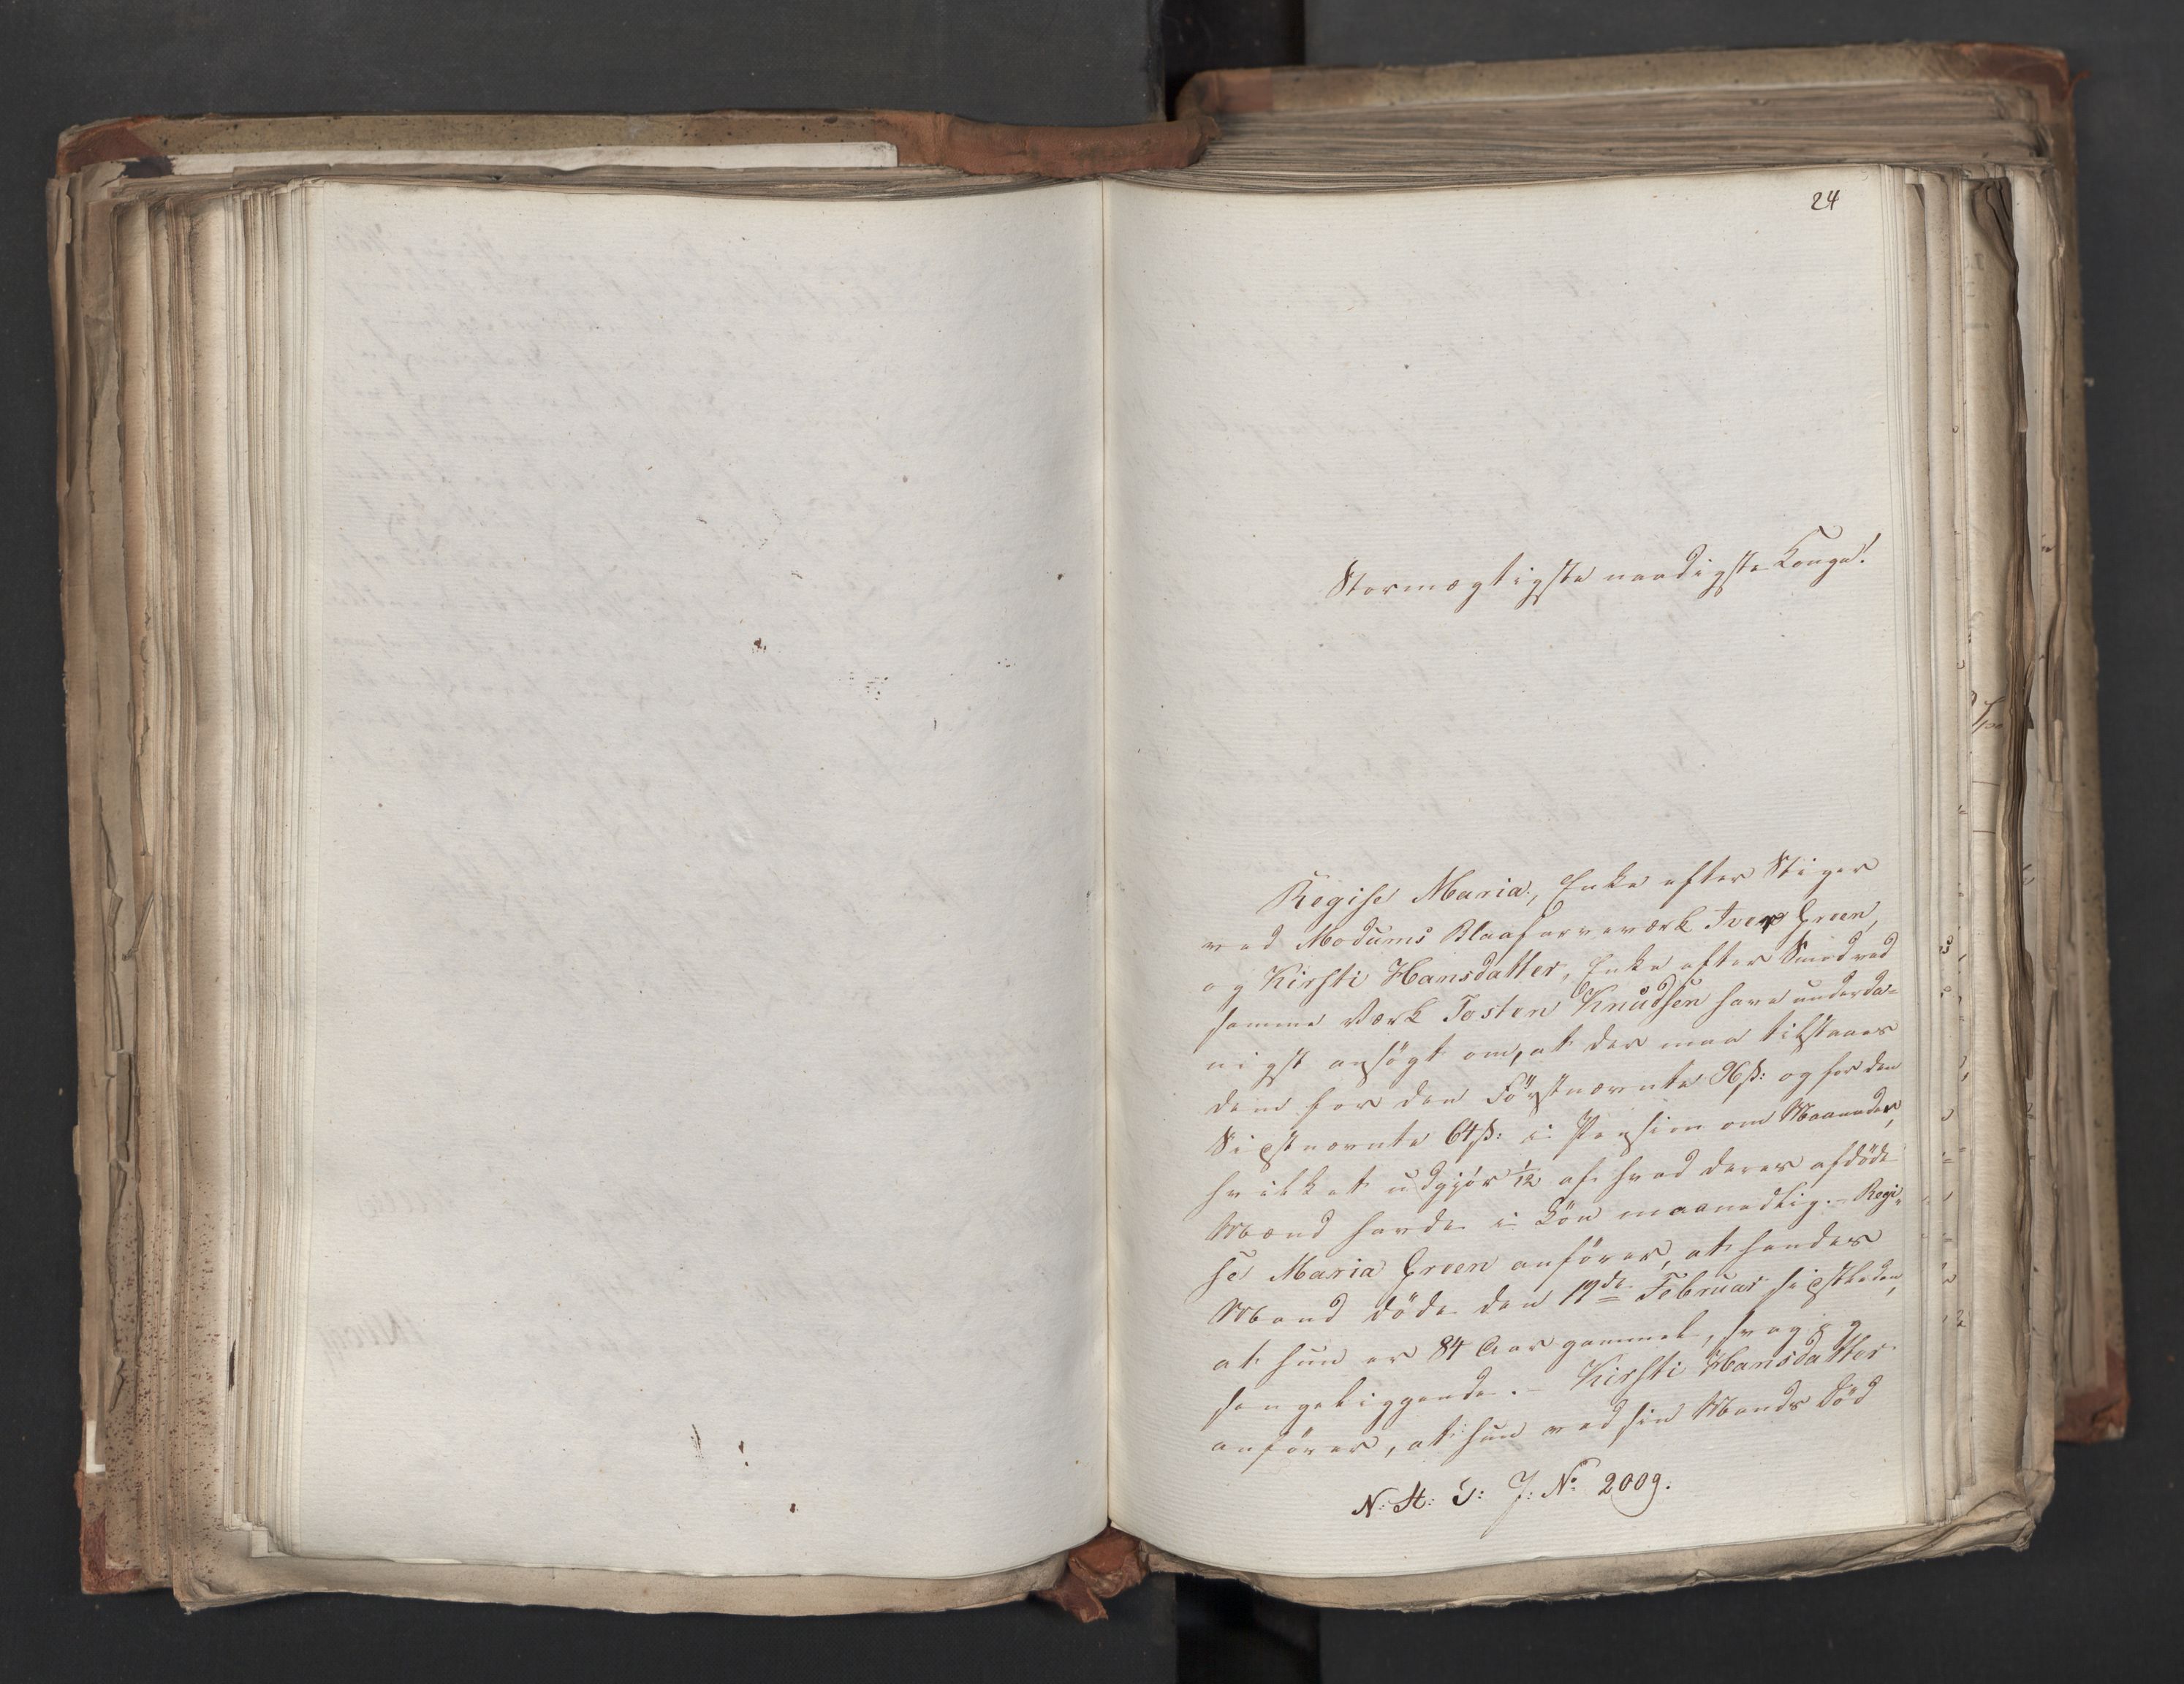 24
Stormægtigste naadigste Konge!
Regise Maria, Enke efter Stiger
ved Modums Blaafarveværk Iver Green,
og Kirsti Hansdatter, Enke efter Smed ved
samme Værk Tosten Knudsen have underda-
nigst ansøgt om, at der maa tilstaaes
dem for den Förstnævnte 96 ß: og for den
Sidstnævnte 64 ß: i Pension om Maaneden,
hvilket udgjör 1/12 af hvad deres afdöde
Mænd havde i Lön maanedlig. - Regi-
se Maria Green anförer, at hendes
Mand döde den 19de Februar sidstleden,
at hun er 84 Aar gammel, svag og
sengeliggende. - Kirsti Hansdatter
anförer, at hun ved sin Mands Död
N: A: J: N: 2009.